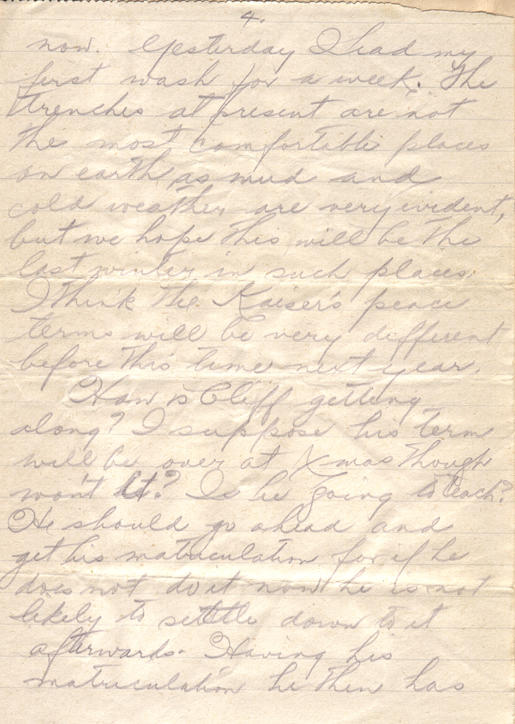 4.
now. Yesterday I had my
first wash for a week. The
trenches at present are not
the most comfortable places
on earth as mud and
cold weather are very evident,
but we hope this will be the
last winter in such places.
I think the Kaiser's peace
terms will be very different
before this time next year.
How is Cliff getting
along? I suppose his term
will be over at Xmas though
won't it? Is he going to teach?
He should go ahead and
get his matriculation for if he
does not do it now he is not
likely to settle down to it
afterwards. Having his
matriculation he then has